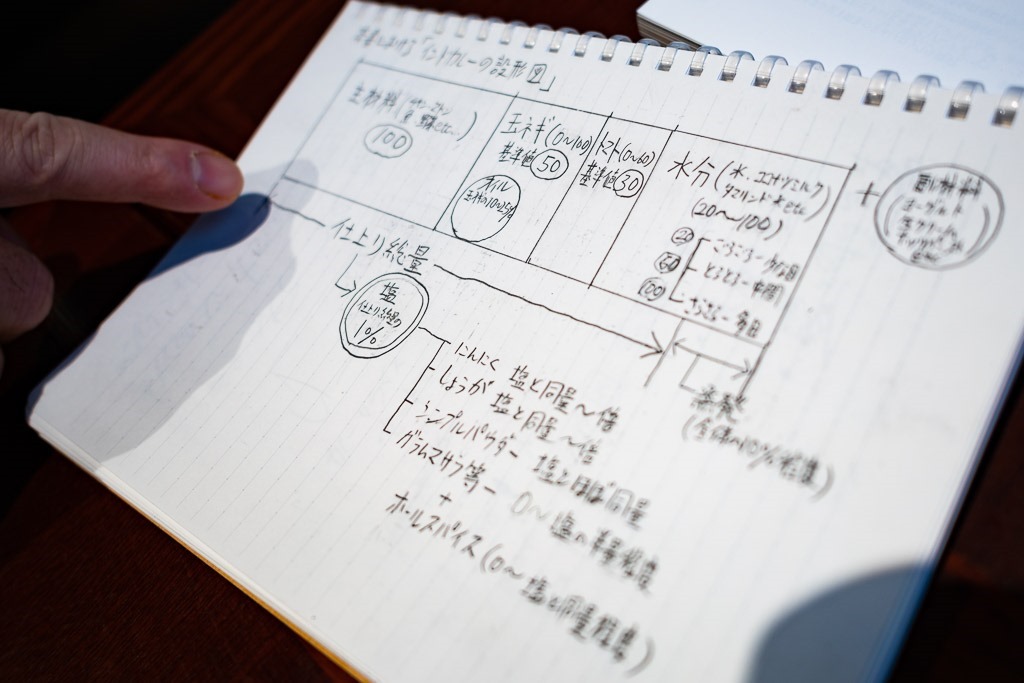 「インドカレーの設形図」
主材料(チキン・マトン
etc...)
100
玉ネギ(0〜100)
基準値 50
オイル
トマト(0〜60)
基準値 30
水分(水、ココナツミルク
タマリンド水etc)
(20〜100)
20 ごろごろ
60 とろとろ 中間
100 さらさら
+
副材料
ヨーグルト
生クリーム
etc
仕上り総量
塩
仕上り総量の
1%
蒸発
(全体の10%程度)
にんにく 塩と同量〜倍
しょうが 塩と同量〜倍
シンプルパウダー 塩とほぼ同量
ガラムマサラ等ー 0〜塩の半量程度
+
ホールスパイス(0〜塩と同量程度)